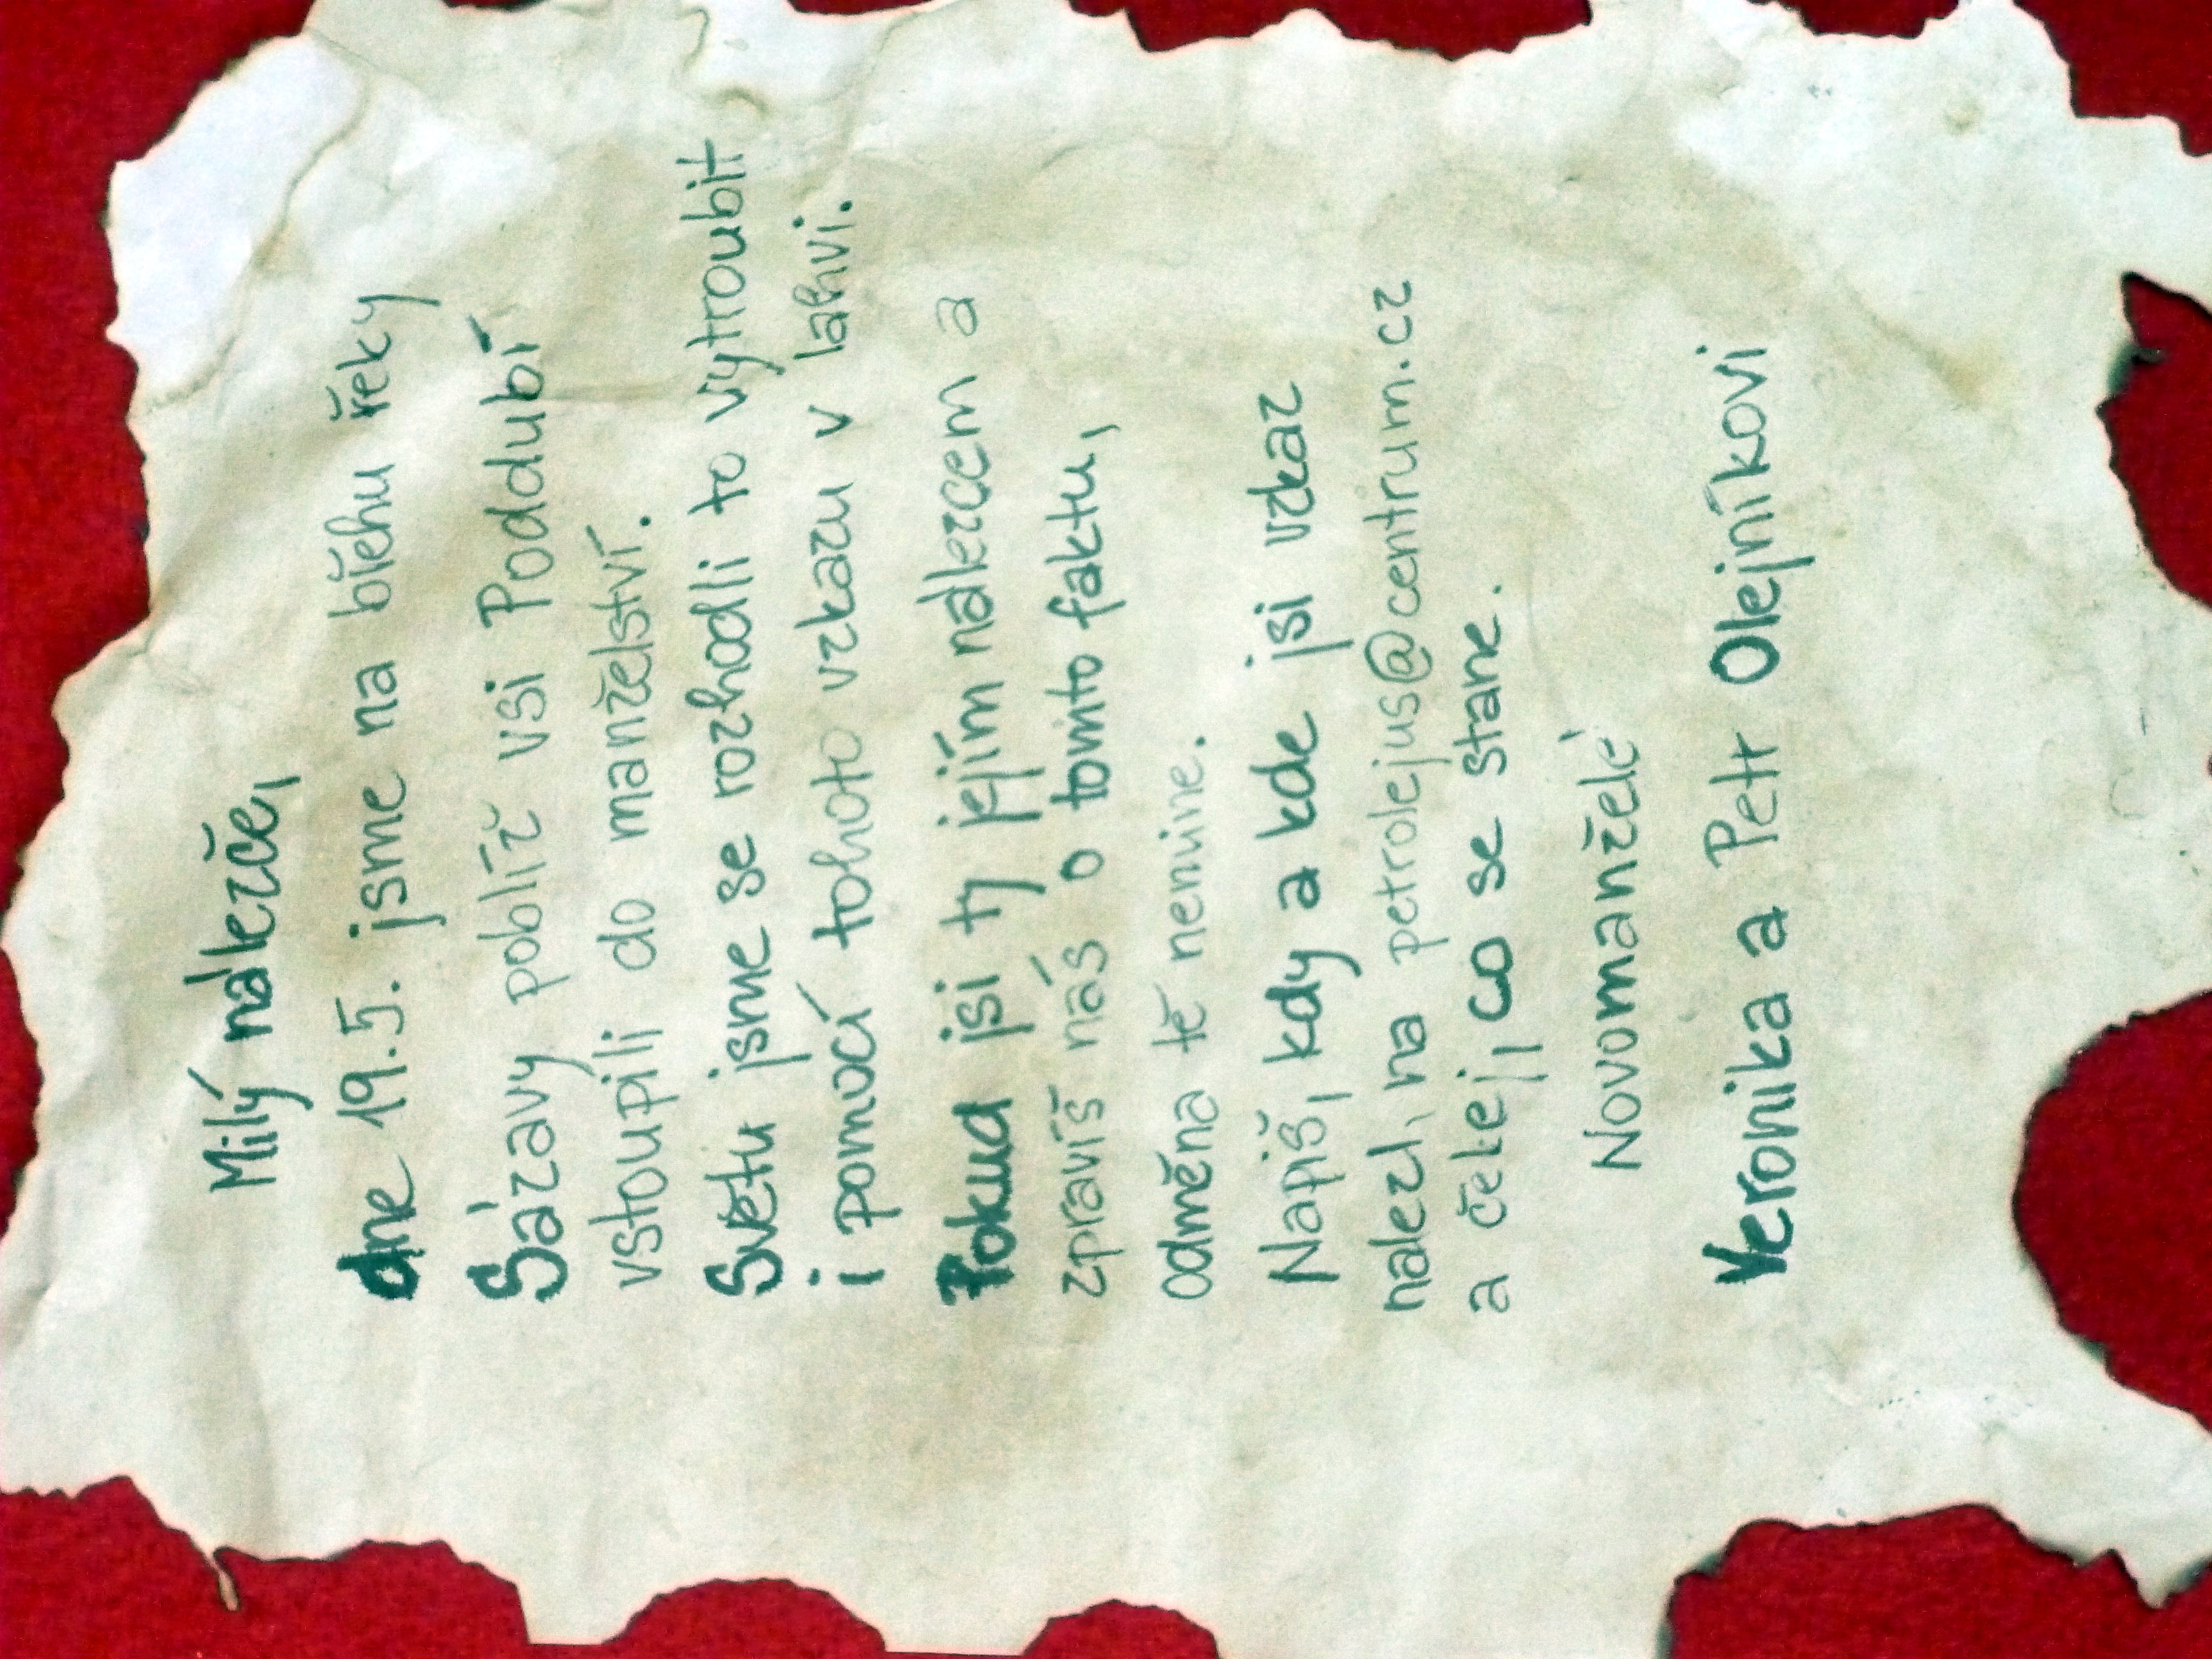 Milý nálezče,
dne 19.5. jsme na břehu řeky
Sázavy poblíž vsi Poddubí
vstoupili do manželství.
Světu jsme se rozhodli to vytroubit
i pomocí tohoto vzkazu v lahvi.
Pokud jsi ty jejím nálezcem a
zpravíš nás o tomto faktu,
odměna tě nemine.
Napiš, kdy a kde jsi vzkaz
nalezl, na petrolejus@centrum.cz
a čekej, co se stane.
Novomanželé
Veronika a Petr Olejníkovi